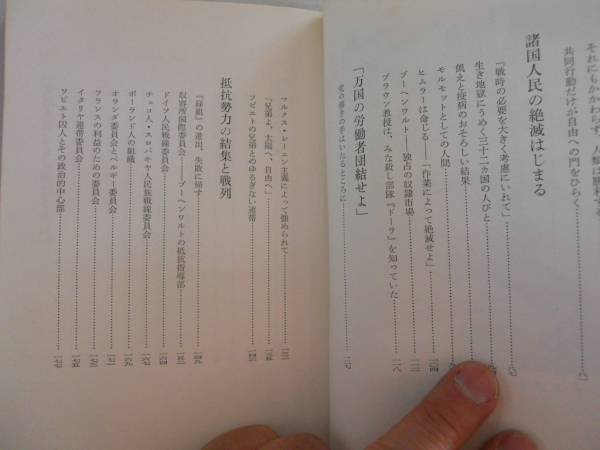 それにもかかわらず、人類は勝利する
共同行動だけが自由への門をひらく
諸国人民の絶滅はじまる
「戦時の必要を大きく考慮にいれて」
生き地獄にうめく三十二カ国の人びと
飢えと疫病のおそろしい結果
モルモットとしての人間
ヒムラーは命じる——「作業によって絶滅せよ」
ブーヘンワルト——独占の奴隷市場
ブラウン教授は、みな殺し部隊『ドーラ』を知っていた
「万国の労働者団結せよ」
マルクス・レーニン主義によって強められて
「兄弟よ、太陽へ、自由へ」
ソビエトの兄弟とのゆるぎない連帯
抵抗勢力の結集と戦列
『緑組』の進出、失敗に帰す
収容所国際委員会——ブーヘンワルトの抵抗指導部
ドイツ人民戦線委員会
チェコ人・スロバキヤ人民族戦線委員会
ポーランド人の組織
オランダ委員会とベルギー委員会
フランスの利益のための委員会
イタリヤ連帯委員会
ソビエト囚人とその政治的中心部